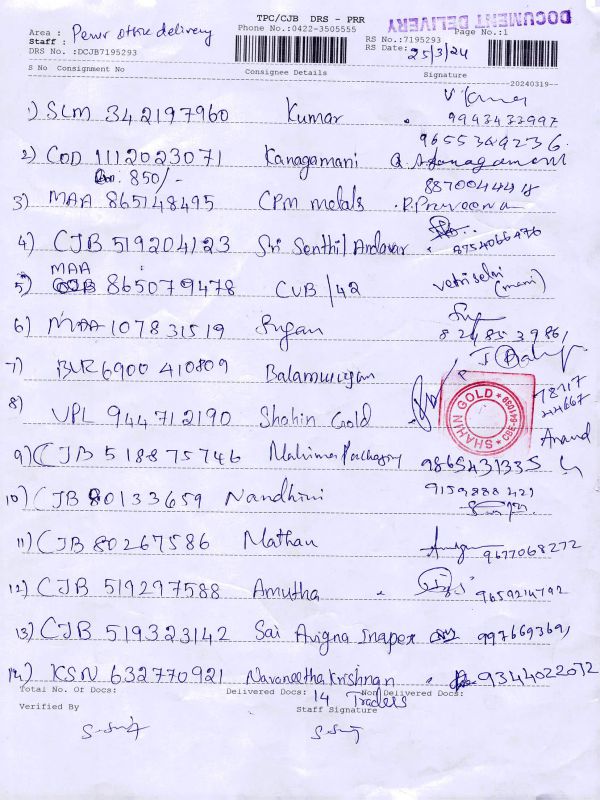 TPC/CJB DRS - PRR
DOCUMENT DELIVERY
Area : Perur office delivery
Phone No.:0422-3505555
Page No.:1
Staff :
RS No.:7195293
DRS No.:DCJB7195293
RS Date: 25/3/24
S No Consignment No Consignee Details Signature
20240319
1) SLM 342197960 Kumar
9943433997
2) COD 1112023071 Kanagamani
9655349236
Rs. 850/-
3) MAA 865148495 CPM metals R. Praveena
8870044418
4) CJB 519204123 Sri Senthil Andavar 8754066476
5) MAA 865079478 CUB/42 Vetriselvi (mani)
6) MAA 107831519 Sugan
7) BLR 6900 410809 Balamurugan
8) VPL 944712190 Shahin Gold
SHAHIN GOLD
Anand
9) CJB 518875746 Mahima Packaging 9865431335
10) CJB 80133659 Nandhini 9159888421
11) CJB 80267586 Mathan 9677068272
12) CJB 519297588 Amutha 9659214792
13) CJB 519323142 Sai Avigna Inapex 997669369,
14) KSN 632770921 Navaneethakrishnan Traders 9344022072
Total No. Of Docs: Delivered Docs: 14 Non Delivered Docs:
Verified By Staff Signature